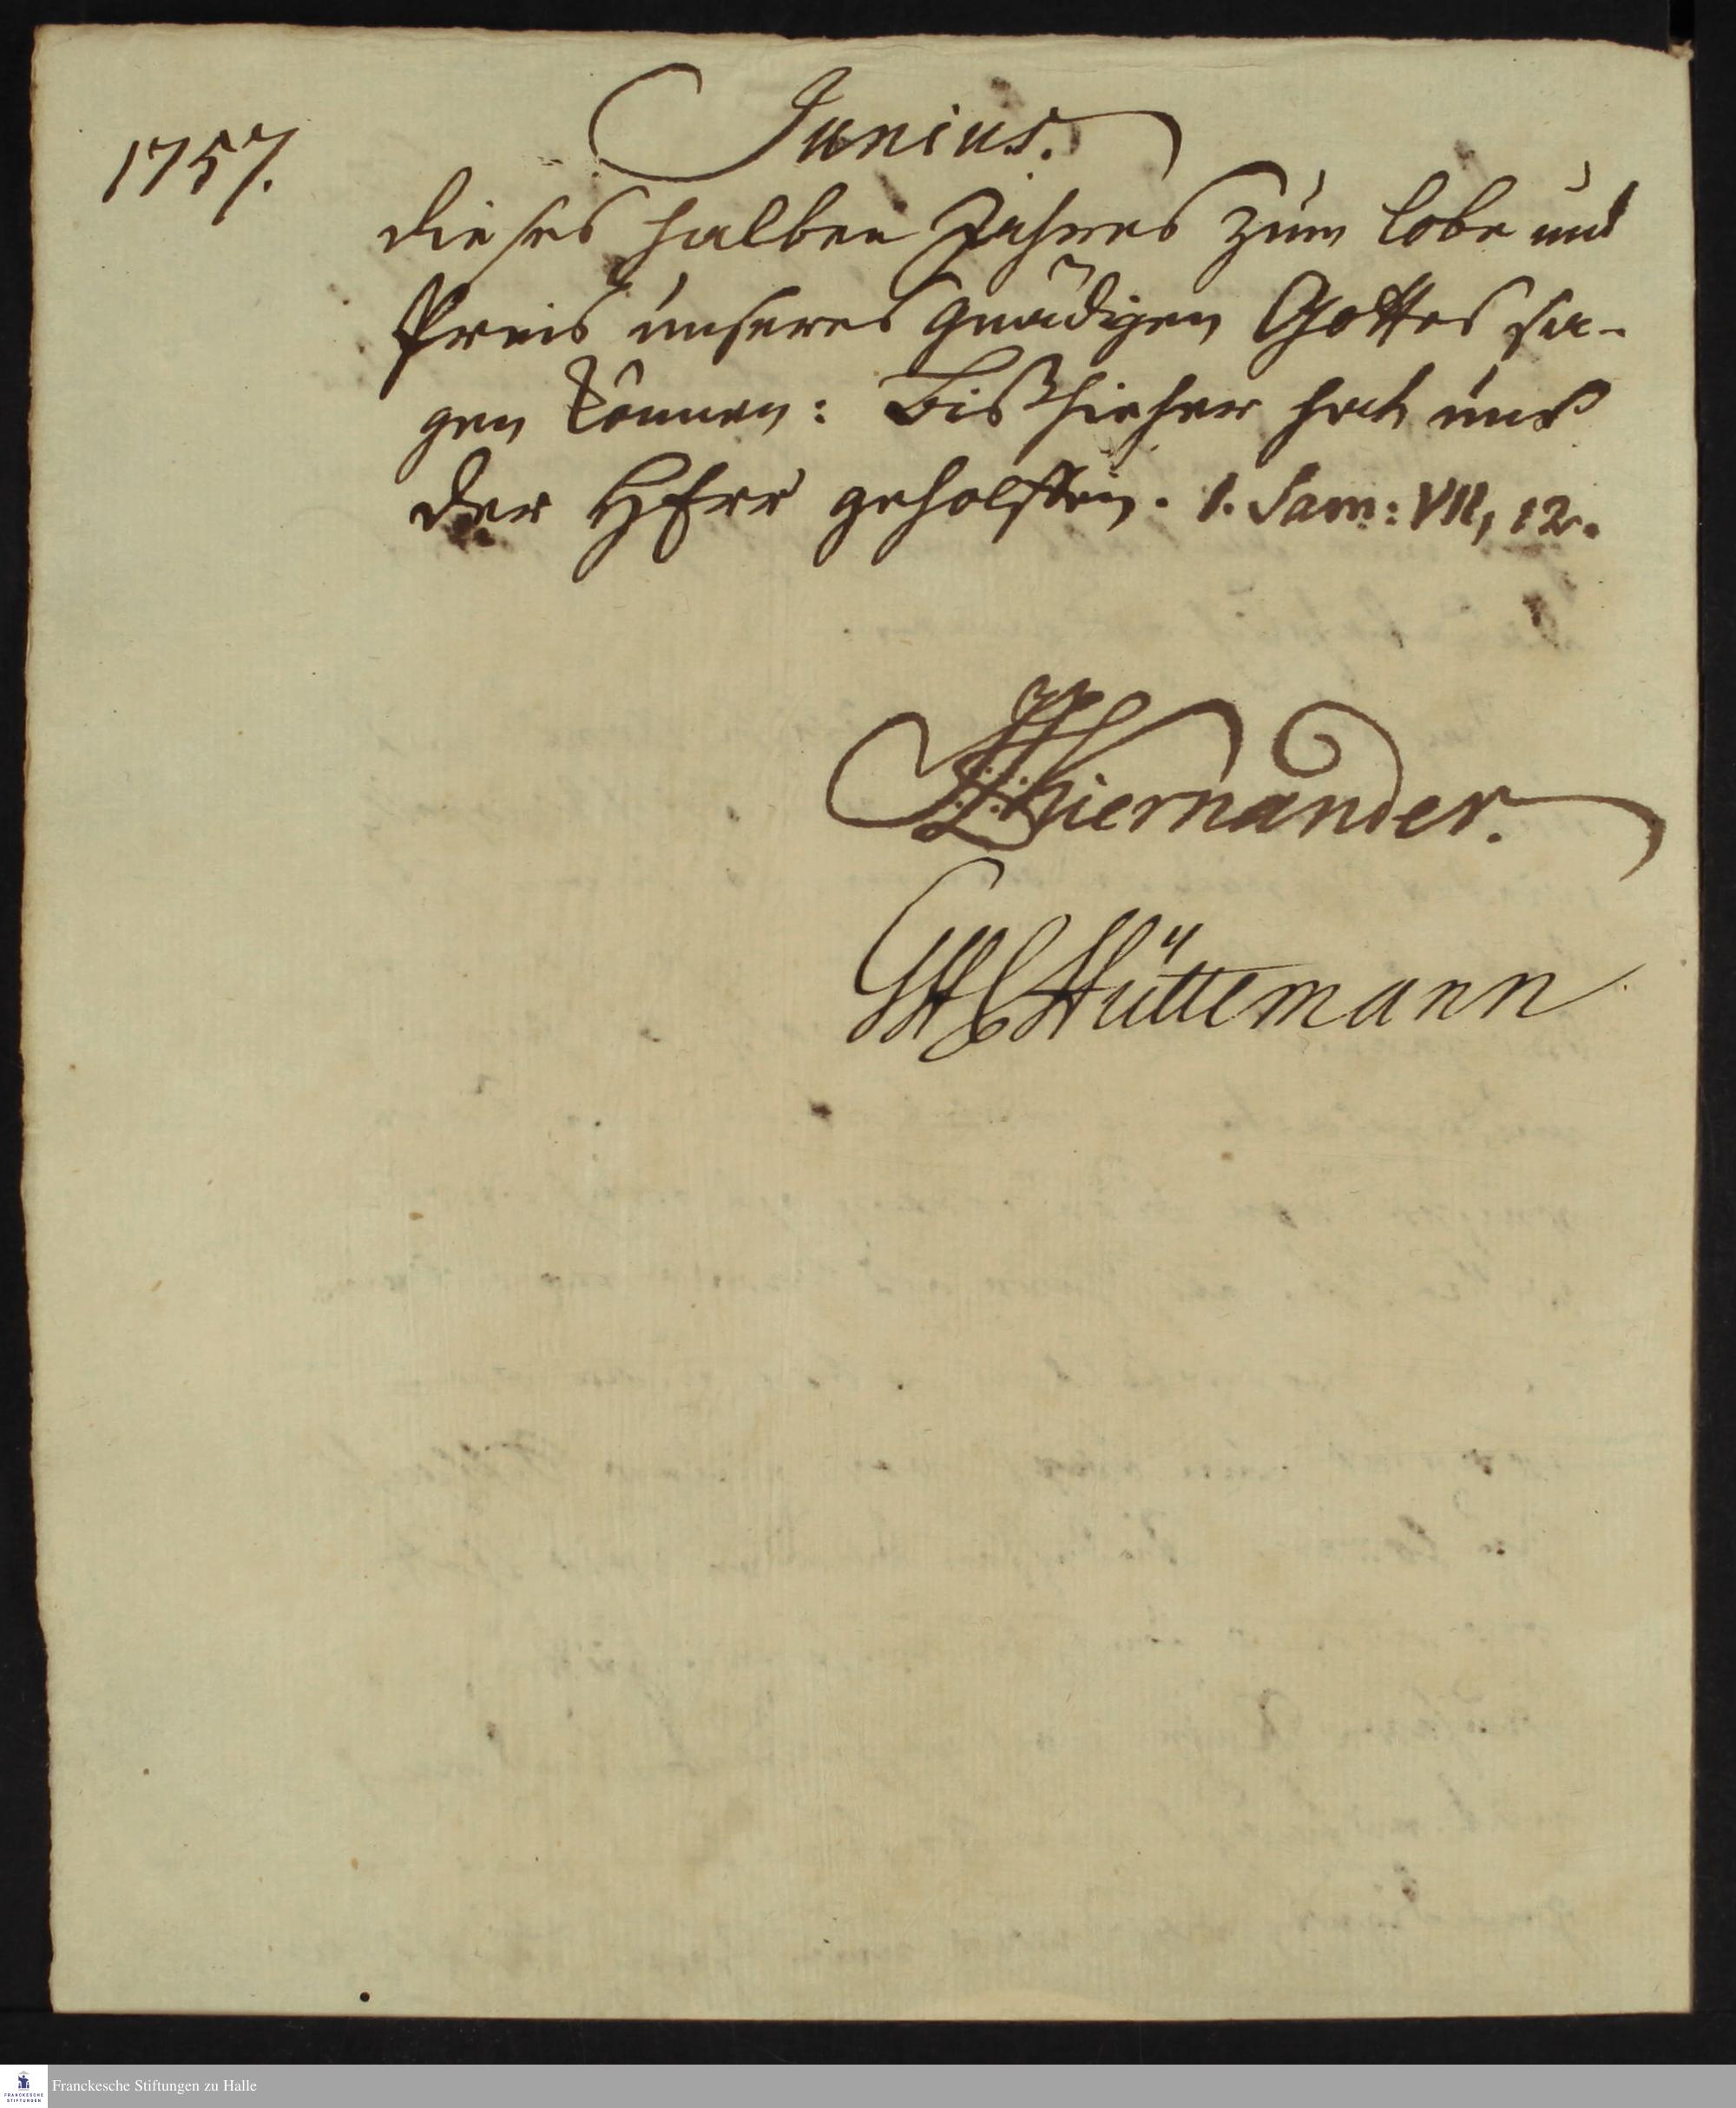 1757.
Junius.
dieses halben Jahres zum Lobe und
Preis unseres gnädigen Gottes sa-
gen können: Bißhieher hat uns
der HErr geholffen. 1. Sam: VII, 12.
Kiernander.
GHC Hüttemann
FRANCKESCHE
STIFTUNGEN
Franckesche Stiftungen zu Halle